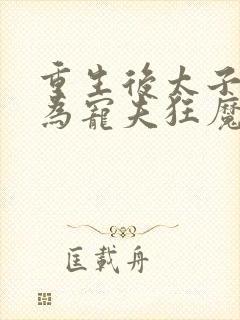 重生後太子
為寵夫狂魔
匡載舟